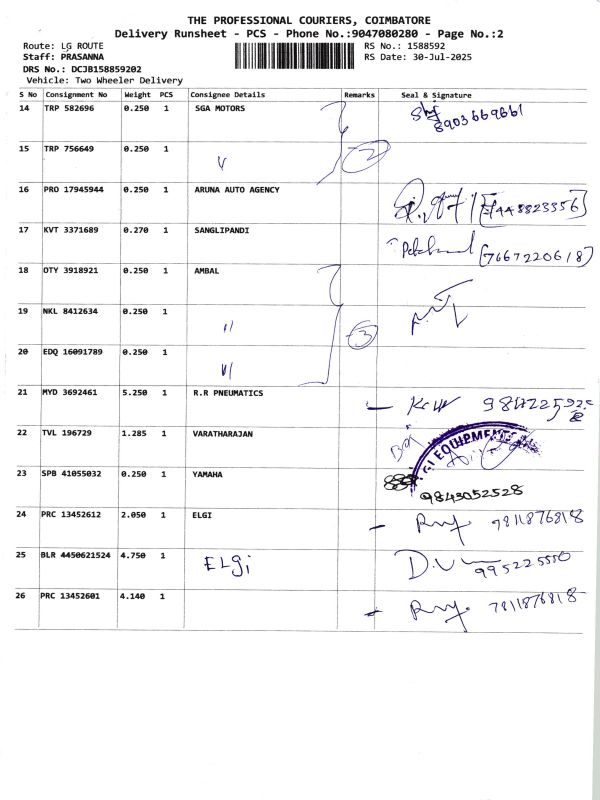 THE PROFESSIONAL COURIERS, COIMBATORE
Delivery Runsheet - PCS - Phone No.:9047080280 - Page No.:2
Route: LG ROUTE RS No.: 1588592
Staff: PRASANNA RS Date: 30-Jul-2025
DRS No.: DCJB158859202
Vehicle: Two Wheeler Delivery
S No Consignment No Weight PCS Consignee Details Remarks Seal & Signature
14 TRP 582696 0.250 1 SGA MOTORS
8903669661
15 TRP 756649 0.250 1 2
16 PRO 17945944 0.250 1 ARUNA AUTO AGENCY
17 KVT 3371689 0.270 1 SANGLIPANDI
[7667220618]
18 OTY 3918921 0.250 1 AMBAL
19 NKL 8412634 0.250 1 " 3
20 EDQ 16091789 0.250 1
21 MYD 3692461 5.250 1 R.R PNEUMATICS
22 TVL 196729 1.285 1 VARATHARAJAN
GI EQUIPMENTS
23 SPB 41055032 0.250 1 YAMAHA
9843052528
24 PRC 13452612 2.050 1 ELGI 7811876818
25 BLR 4450621524 4.750 1 ELGi 995225550
26 PRC 13452601 4.140 1 7811876818